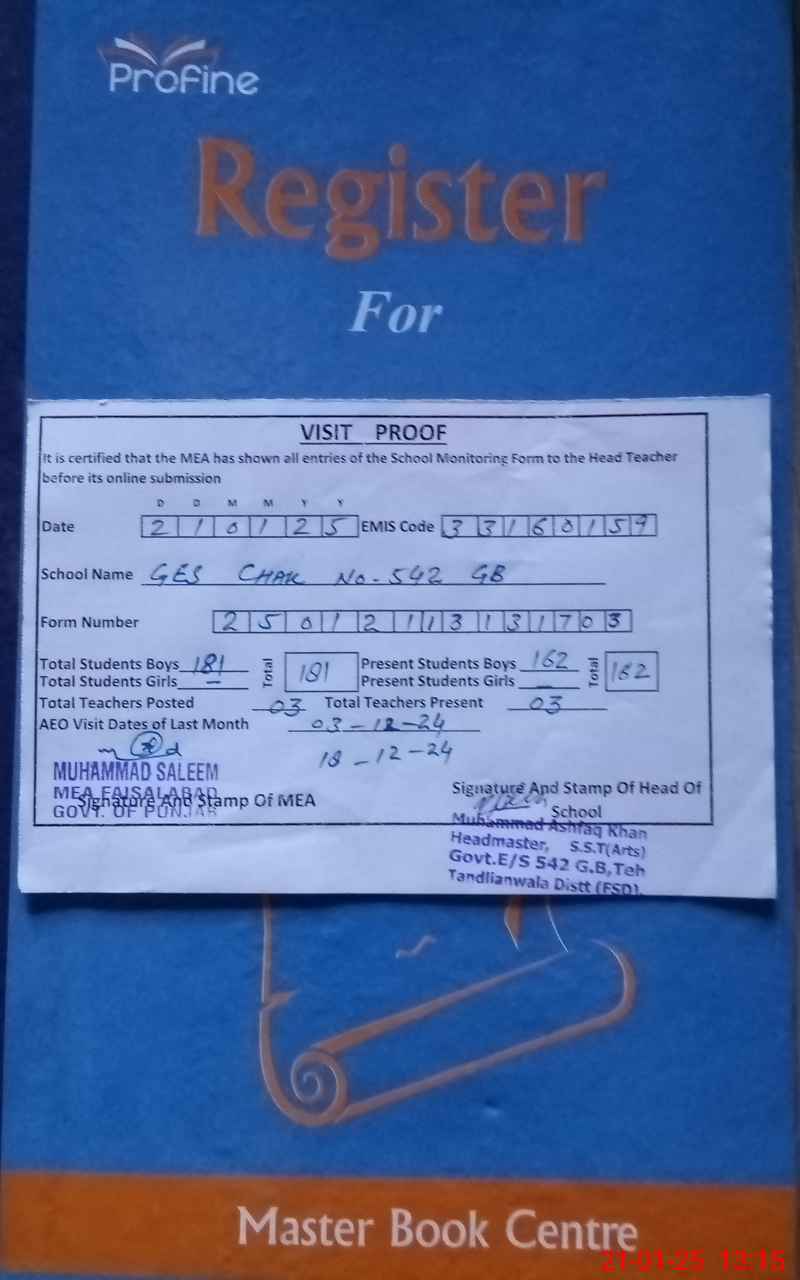 Profine
Register
For
VISIT PROOF
It is certified that the MEA has shown all entries of the School Monitoring Form to the Head Teacher
before its online submission
D D M M Y Y
Date 2 1 0 1 2 5 EMIS Code 3 3 1 6 0 1 5 9
School Name GES CHAK No-542 GB
Form Number 2 5 0 1 2 1 1 3 1 3 1 7 0 3
Total Students Boys 181 Total 181 Present Students Boys 162 Total 162
Total Students Girls — Present Students Girls —
Total Teachers Posted 03 Total Teachers Present 03
AEO Visit Dates of Last Month 03-12-24
18-12-24
MUHAMMAD SALEEM
MEA FAISALABAD
GOVT. OF PUNJAB
Signature And Stamp Of MEA
Signature And Stamp Of Head Of
School
Muhammad Ashfaq Khan
Headmaster, S.S.T(Arts)
Govt.E/S 542 G.B,Teh
Tandlianwala Distt (FSD).
Master Book Centre
21-01-25 13:15